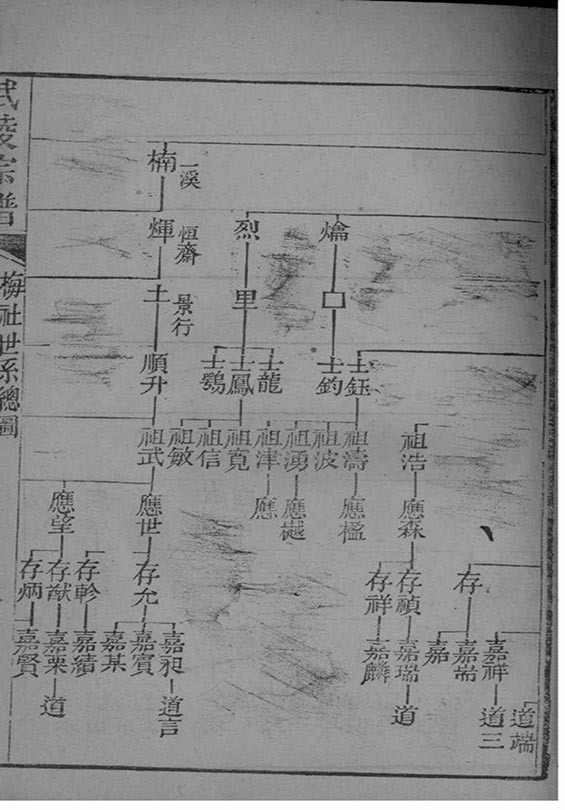 武陵宗譜
梅社世系總圖
一溪
楠
爚
烈
恒齋
煇
口
里
景行
土
士鈺
士鈞
士龍
士鳳
士鶚
順升
祖浩
祖濤
祖波
祖湧
祖津
祖寬
祖信
祖敏
祖武
應森
應楹
應樾
應
應世
應望
存
存禎
存祥
存允
存軫
存猷
存炳
嘉祥
嘉耑
嘉
嘉瑞
嘉麟
嘉昶
嘉賓
嘉某
嘉績
嘉栗
嘉賢
道端
道三
道
道言
道